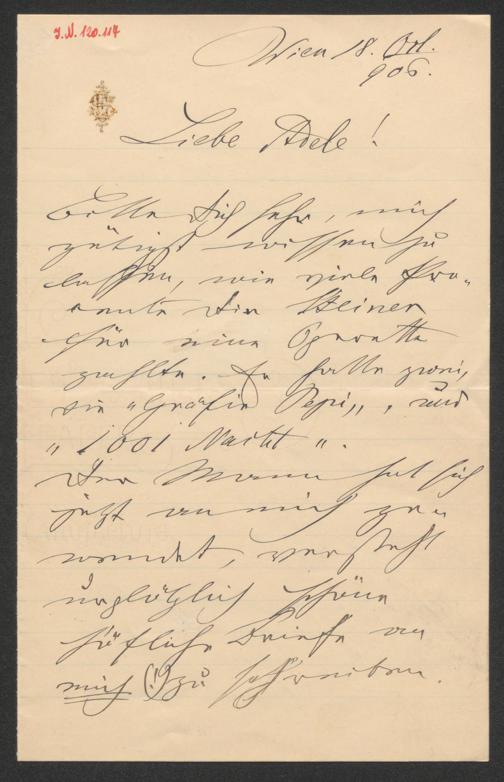 J.N. 120.117
Wien 18. Okt.
906.
Liebe Adele!
Bitte dich sehr, mich
gütigst wissen zu
lassen, wie viele Pro-
cente dir Steiner
für eine Operette
zahlte. Er hatte zwei,
die "Gräfin Pepi", und
"1001 Nacht".
Der Mann hat sich
jetzt an mich ge-
wendet, versteht
urplötzlich schöne
höfliche Briefe an
mich (!) zu schreiben.